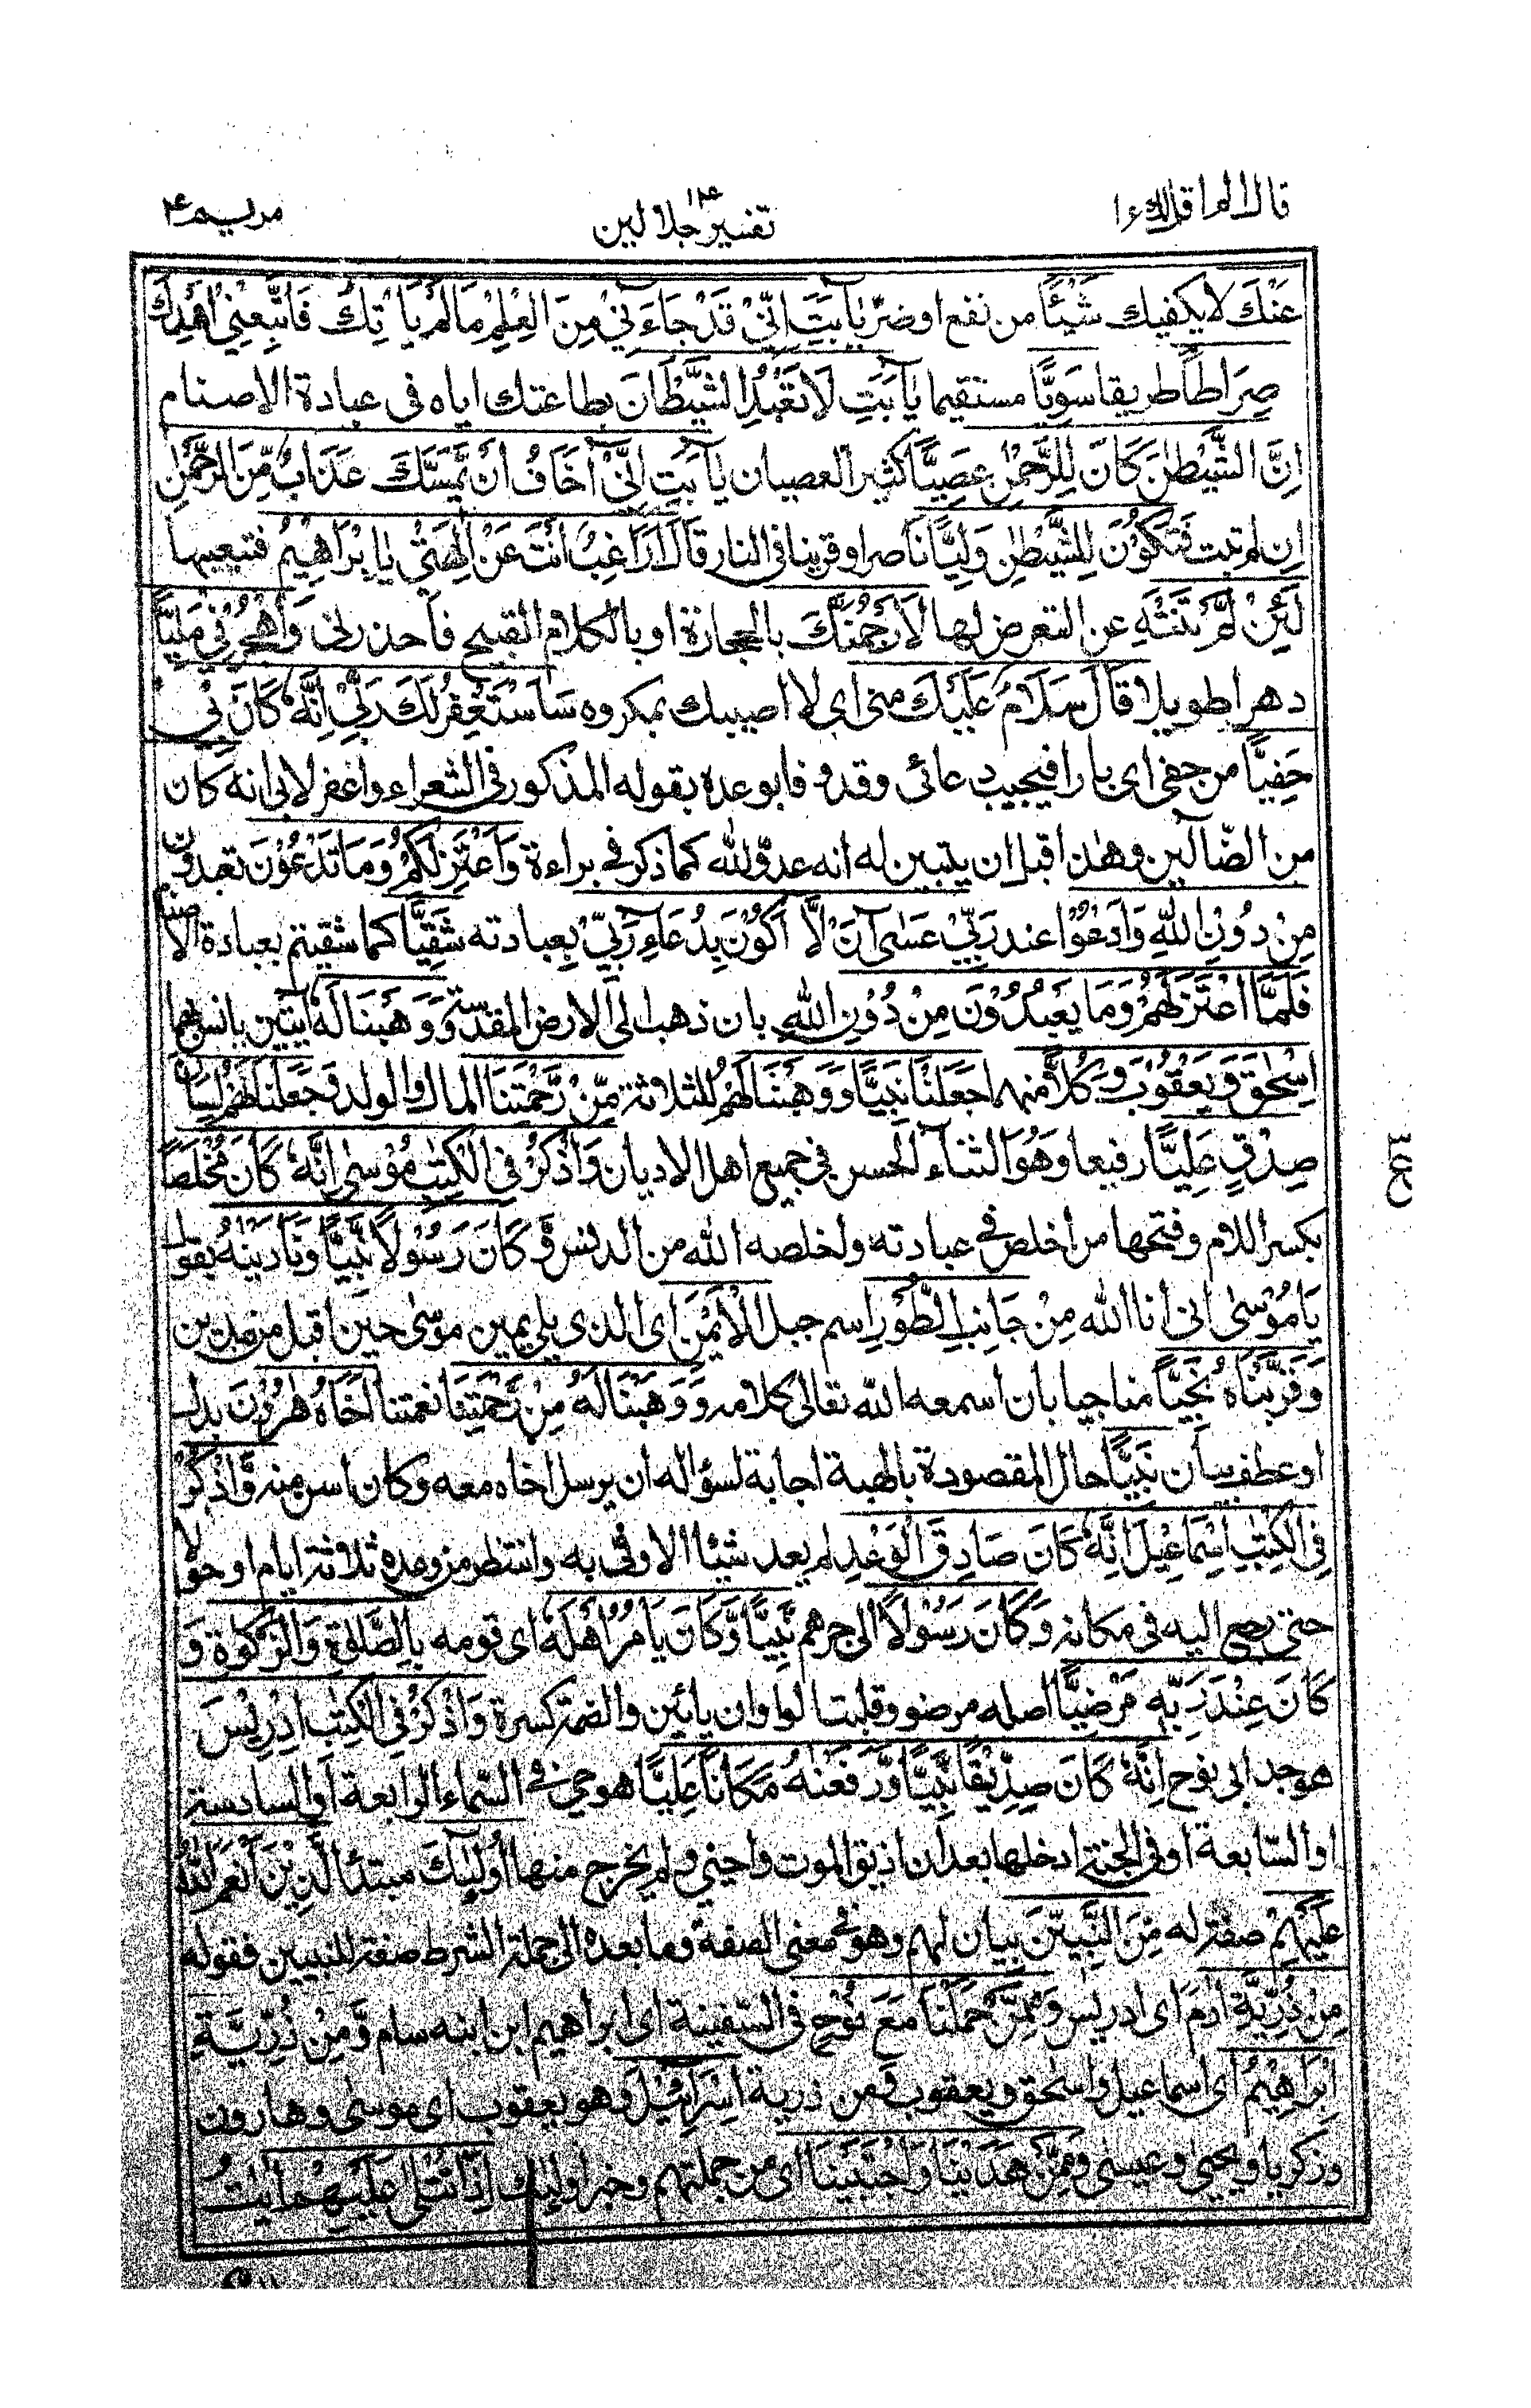 قال الم اقل لك ١٦
تفسير جلالين
مريم
عَنْكَ لا يكفيك شَيْئًا من نفع او ضرّ يٰٓاَبَتِ اِنِّيْ قَدْ جَاءَنِيْ مِنَ الْعِلْمِ مَا لَمْ يَاْتِكَ فَاتَّبِعْنِيْ اَهْدِكَ
صِرَاطًا طريقا سَوِيًّا مستقيما يٰٓاَبَتِ لَا تَعْبُدِ الشَّيْطَانَ بطاعتك اياه فى عبادة الاصنام
اِنَّ الشَّيْطٰنَ كَانَ لِلرَّحْمٰنِ عَصِيًّا كثير العصيان يٰٓاَبَتِ اِنِّيْٓ اَخَافُ اَنْ يَّمَسَّكَ عَذَابٌ مِّنَ الرَّحْمٰنِ
ان لم تتب فَتَكُوْنَ لِلشَّيْطٰنِ وَلِيًّا ناصرا وقرينا فى النار قَالَ اَرَاغِبٌ اَنْتَ عَنْ اٰلِهَتِيْ يٰٓاِبْرَاهِيْمُ فتعيبها
لَئِنْ لَّمْ تَنْتَهِ عن التعرض لها لَاَرْجُمَنَّكَ بالحجارة او بالكلام القبيح فاحذرنى وَاهْجُرْنِيْ مَلِيًّا
دهرا طويلا قَالَ سَلَامٌ عَلَيْكَ منى اى لا اصيبك بمكروه سَاَسْتَغْفِرُ لَكَ رَبِّيْ اِنَّهٗ كَانَ بِيْ
حَفِيًّا من حفى اى بارا فيجيب دعائى وقد وفا بوعده بقوله المذكور فى الشعراء واغفر لابى انه كان
من الضّالين وهٰذا قبل ان يتبين له انه عدوّ لله كما ذكر فى براءة وَاَعْتَزِلُكُمْ وَمَا تَدْعُوْنَ تعبدون
مِنْ دُوْنِ اللّٰهِ وَاَدْعُوْا عند رَبِّيْ عَسٰىٓ اَنْ لَّآ اَكُوْنَ بِدُعَآءِ رَبِّيْ بعبادته شَقِيًّا كما شقيتم بعبادة الاصنام
فَلَمَّا اعْتَزَلَهُمْ وَمَا يَعْبُدُوْنَ مِنْ دُوْنِ اللّٰهِ بان ذهب الى الارض المقدسة وَوَهَبْنَا لَهٗٓ ابنين يانس بهما
اِسْحٰقَ وَيَعْقُوْبَ وَكُلًّا منهما جَعَلْنَا نَبِيًّا وَوَهَبْنَا لَهُمْ للثلاثة مِّنْ رَّحْمَتِنَا المال والولد وَجَعَلْنَا لَهُمْ لِسَانَ
صِدْقٍ عَلِيًّا رفيعا وَهُوَ الثناء الحسن فى جميع اهل الاديان وَاذْكُرْ فِي الْكِتٰبِ مُوْسٰىٓ اِنَّهٗ كَانَ مُخْلَصًا
بكسر اللام وفتحها من اخلص فى عبادته واخلصه الله من الدنس وَّكَانَ رَسُوْلًا نَّبِيًّا وَنَادَيْنٰهُ بقول
يَا مُوْسٰى انى انا الله مِنْ جَانِبِ الطُّوْرِ اسم جبل الْاَيْمَنِ اى الذى يلى يمين موسٰى حين اقبل من مدين
وَقَرَّبْنَاهُ نَجِيًّا مناجيا بان اسمعه الله تعالى كلامه وَوَهَبْنَا لَهٗ مِنْ رَّحْمَتِنَا نعمتنا اَخَاهُ هٰرُوْنَ بدل
او عطف بيان نَبِيًّا حال المقصودة بالهبة اجابة لسؤاله ان يرسل اخاه معه وكان اسن منه وَاذْكُرْ
فِي الْكِتٰبِ اِسْمَاعِيْلَ اِنَّهٗ كَانَ صَادِقَ الْوَعْدِ لم يعد شيئا الا وفى به وانتظر من وعده ثلاثة ايام او حولا
حتى رجع اليه فى مكانه وَكَانَ رَسُوْلًا الى جرهم نَّبِيًّا وَّكَانَ يَاْمُرُ اَهْلَهٗ اى قومه بِالصَّلٰوةِ وَالزَّكٰوةِ وَ
كَانَ عِنْدَ رَبِّهٖ مَرْضِيًّا اصله مرضوو قلبت الواوان يائين والضمة كسرة وَاذْكُرْ فِي الْكِتٰبِ اِدْرِيْسَ
هو جد ابى نوح اِنَّهٗ كَانَ صِدِّيْقًا نَّبِيًّا وَّرَفَعْنٰهُ مَكَانًا عَلِيًّا هو حى فى السّماء الرابعة او السادسة
او السّابعة او فى الجنة ادخلها بعد ان اذيق الموت واحيى ولم يخرج منها اُولٰٓئِكَ مبتدا الَّذِيْنَ اَنْعَمَ اللّٰهُ
عَلَيْهِمْ صفة له مِّنَ النَّبِيّٖنَ بيان لهم وهو فى معنى الصفة وما بعده الى جملة الشرط صفة للنبيين فقوله
مِنْ ذُرِّيَّةِ اٰدَمَ اى ادريس وَمِمَّنْ حَمَلْنَا مَعَ نُوْحٍ فى السّفينة اى ابراهيم ابن ابنه سام وَّمِنْ ذُرِّيَّةِ
اِبْرَاهِيْمَ اى اسماعيل واسحٰق ويعقوب وَمن ذرية اِسْرَآئِيْلَ وهو يعقوب اى موسٰى وهارون
وزكريا ويحيى وعيسى وَمِمَّنْ هَدَيْنَا وَاجْتَبَيْنَا اى من جملتهم وخبر اولئك اِذَا تُتْلٰى عَلَيْهِمْ اٰيٰتُ